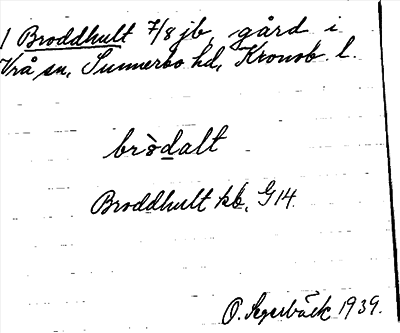 1 Broddhult 7/8 jb, gård i
Vrå sn, Sunnerbo hd, Kronob. l.
bròdalt
Broddhult kb, G14.
O. Segerbäck 1939.